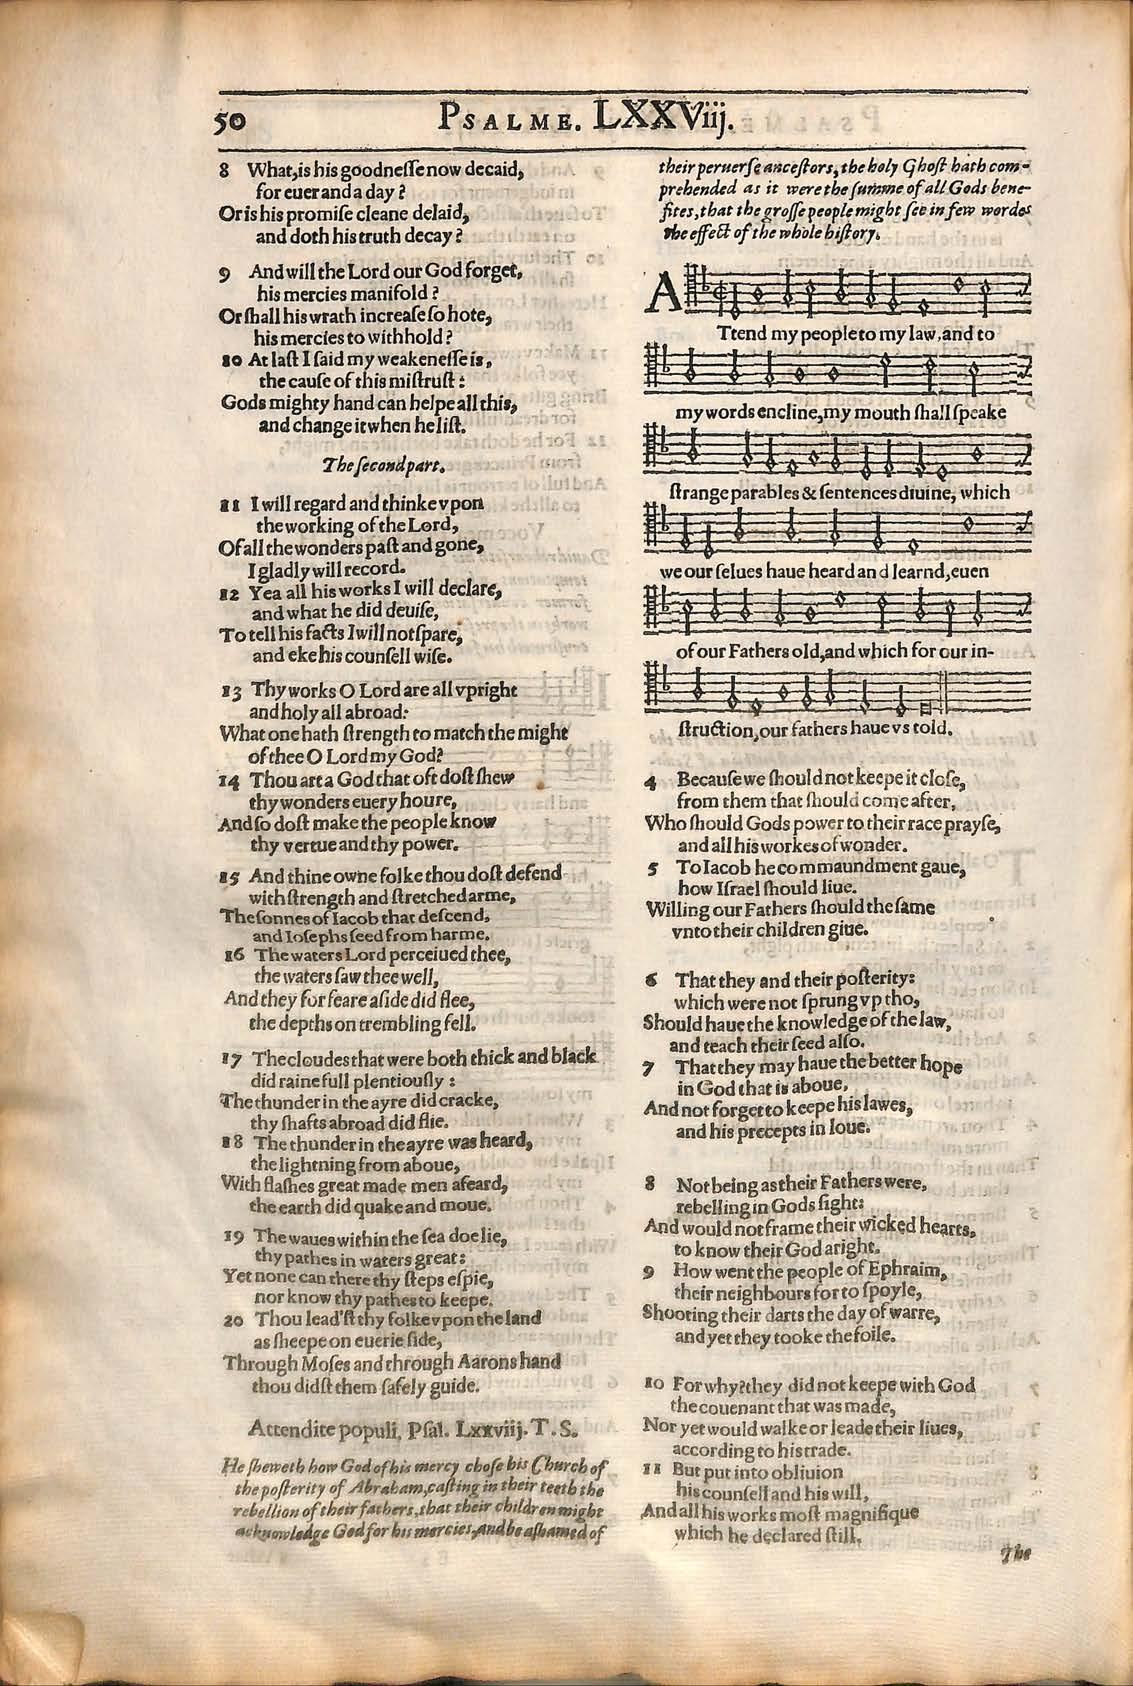 50
PSALME. LXXViij.
8 What,is his goodneſſe now decaid,
for euer and a day ?
Or is his promiſe cleane delaid,
and doth his truth decay ?
9 And will the Lord our God forget,
his mercies manifold ?
Or ſhall his wrath increaſe ſo hote,
his mercies to withhold ?
10 At laſt I ſaid my weakeneſſe is,
the cauſe of this miſtruſt :
Gods mighty hand can helpe all this,
and change it when he liſt.
The ſecond part.
11 I will regard and thinke vpon
the working of the Lord,
Of all the wonders paſt and gone,
I gladly will record.
12 Yea all his works I will declare,
and what he did deuiſe,
To tell his facts I will not ſpare,
and eke his counſell wiſe.
13 Thy works O Lord are all vpright
and holy all abroad:
What one hath ſtrength to match the might
of thee O Lord my God?
14 Thou art a God that oft doſt ſhew
thy wonders euery houre,
And ſo doſt make the people know
thy vertue and thy power.
15 And thine owne folke thou doſt defend
with ſtrength and ſtretched arme,
The ſonnes of Iacob that deſcend,
and Ioſephs ſeed from harme.
16 The waters Lord perceiued thee,
the waters ſaw thee well,
And they for feare aſide did flee,
the depths on trembling fell.
17 The cloudes that were both thick and black
did raine full plentiouſly :
The thunder in the ayre did cracke,
thy ſhafts abroad did flie.
18 The thunder in the ayre was heard,
the lightning from aboue,
With flaſhes great made men afeard,
the earth did quake and moue.
19 The waues within the ſea doe lie,
thy pathes in waters great:
Yet none can there thy ſteps eſpie,
nor know thy pathes to keepe.
20 Thou lead'ſt thy folke vpon the land
as ſheepe on euerie ſide,
Through Moſes and through Aarons hand
thou didſt them ſafely guide.
Attendite populi, Pſal. Lxxviij. T. S.
He ſheweth how God of his mercy choſe his Church of
the poſterity of Abraham,caſting in their teeth the
rebellion of their fathers,that their children might
acknowledge God for his mercies,and be aſhamed of
their peruerſe anceſtors, the holy Ghoſt hath com-
prehended as it were the ſumme of all Gods bene-
fites,that the groſſe people might ſee in few wordes
the effect of the whole hiſtory.
ATtend my people to my law,and to
my words encline,my mouth ſhall ſpeake
ſtrange parables & ſentences diuine, which
we our ſelues haue heard and learnd,euen
of our Fathers old,and which for our in-
ſtruction,our fathers haue vs told.
4 Becauſe we ſhould not keepe it cloſe,
from them that ſhould come after,
Who ſhould Gods power to their race prayſe,
and all his workes of wonder.
5 To Iacob he commaundment gaue,
how Iſrael ſhould liue.
Willing our Fathers ſhould the ſame
vnto their children giue.
6 That they and their poſterity:
which were not ſprung vp tho,
Should haue the knowledge of the law,
and teach their ſeed alſo.
7 That they may haue the better hope
in God that is aboue,
And not forget to keepe his lawes,
and his precepts in loue.
8 Not being as their Fathers were,
rebelling in Gods ſight:
And would not frame their wicked hearts,
to know their God aright.
9 How went the people of Ephraim,
their neighbours for to ſpoyle,
Shooting their darts the day of warre,
and yet they tooke the foile.
10 For why?they did not keepe with God
the couenant that was made,
Nor yet would walke or leade their liues,
according to his trade.
11 But put into obliuion
his counſell and his will,
And all his works moſt magnifique
which he declared ſtill.
The